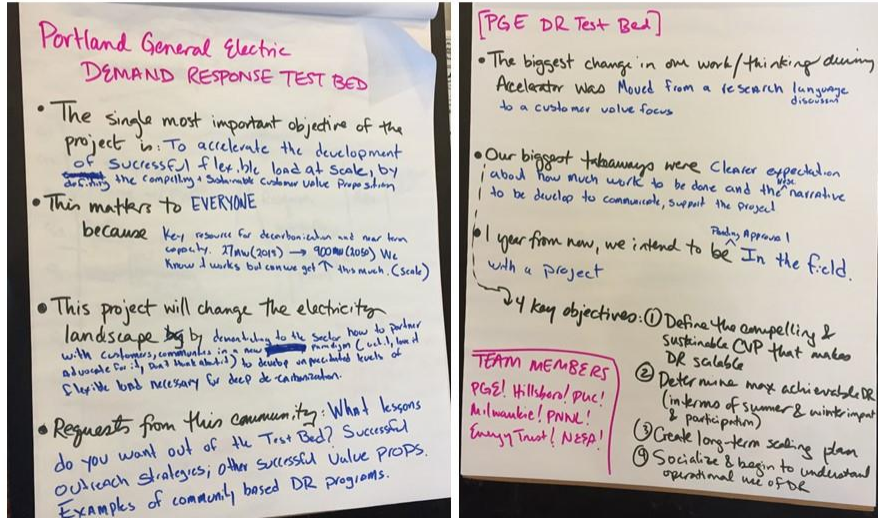 Portland General Electric
DEMAND RESPONSE TEST BED
• The single most important objective of the
project is: To accelerate the development
of successful flexible load at scale, by
defining the compelling & sustainable customer value proposition
• This matters to EVERYONE
because key resource for decarbonization and near term
capacity. 27MW (2019) → 900MW (2050) We
know it works but can we get ↑ this much. (scale)
• This project will change the electricity
landscape by demonstrating to the sector how to partner
with customers, communities in a new paradigm
advocate for it, Don't think about it) to develop unprecedented levels of
flexible load necessary for deep de-carbonization.
• Requests from this community: What lessons
do you want out of the Test Bed? Successful
outreach strategies; other successful value props.
Examples of community based DR programs.
[PGE DR Test Bed]
• The biggest change in our work/thinking during
Acelerator was Moved from a research language
discussion
to a customer value focus
• Our biggest takeaways were Clearer expectation
about how much work to be done and the narrative
to be develop to communicate, support the project
Pending Approval
• 1 year from now, we intend to be In the field.
with a project
4 key objectives: ① Define the compelling &
sustainable CVP that makes
DR scalable
② Determine max achievable DR
(in terms of summer & winter impact
& participation)
③ Create long-term scaling plan
④ Socialize & begin to understand
operational use of DR
TEAM MEMBERS
PGE! Hillsboro! PUC!
Milwaukie! PNNL!
Energy Trust! NEEA!